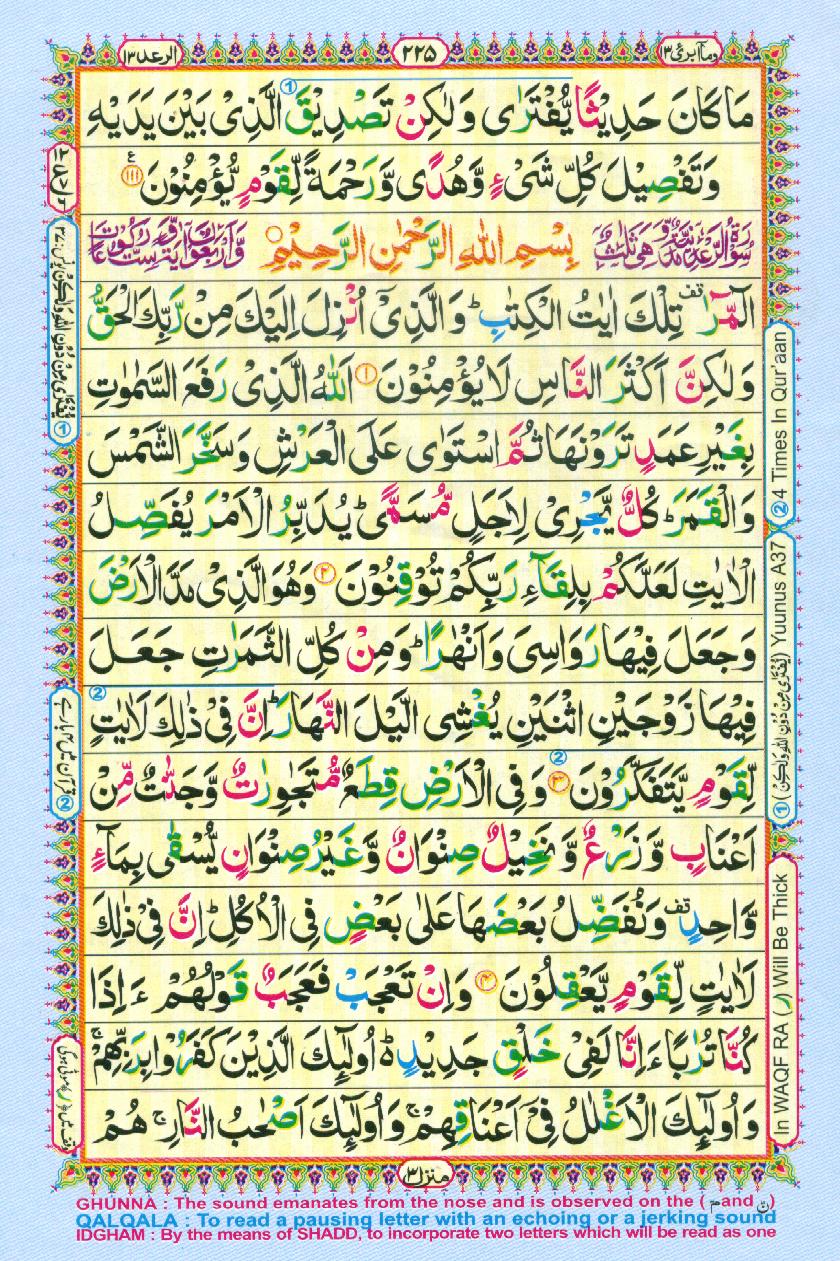 الرعد ۱۳ ۲۲۵ ومآ ابرئ ۱۳
مَا كَانَ حَدِيْثًا يُّفْتَرٰى وَلٰكِنْ تَصْدِيْقَ الَّذِىْ بَيْنَ يَدَيْهِ
وَتَفْصِيْلَ كُلِّ شَىْءٍ وَّهُدًى وَّرَحْمَةً لِّقَوْمٍ يُّؤْمِنُوْنَ ۝۱۱۱
بِسْمِ اللّٰهِ الرَّحْمٰنِ الرَّحِيْمِ
الٓمّٓرٰ ۟ تِلْكَ اٰيٰتُ الْكِتٰبِ ؕ وَالَّذِىْۤ اُنْزِلَ اِلَيْكَ مِنْ رَّبِّكَ الْحَقُّ
وَلٰكِنَّ اَكْثَرَ النَّاسِ لَا يُؤْمِنُوْنَ ۝۱ اَللّٰهُ الَّذِىْ رَفَعَ السَّمٰوٰتِ
بِغَيْرِ عَمَدٍ تَرَوْنَهَا ثُمَّ اسْتَوٰى عَلَى الْعَرْشِ وَسَخَّرَ الشَّمْسَ
وَالْقَمَرَ ؕ كُلٌّ يَّجْرِىْ لِاَجَلٍ مُّسَمًّى ؕ يُدَبِّرُ الْاَمْرَ يُفَصِّلُ
الْاٰيٰتِ لَعَلَّكُمْ بِلِقَآءِ رَبِّكُمْ تُوْقِنُوْنَ ۝۲ وَهُوَ الَّذِىْ مَدَّ الْاَرْضَ
وَجَعَلَ فِيْهَا رَوَاسِىَ وَاَنْهٰرًا ؕ وَمِنْ كُلِّ الثَّمَرٰتِ جَعَلَ
فِيْهَا زَوْجَيْنِ اثْنَيْنِ يُغْشِى الَّيْلَ النَّهَارَ ؕ اِنَّ فِىْ ذٰلِكَ لَاٰيٰتٍ
لِّقَوْمٍ يَّتَفَكَّرُوْنَ ۝۳ وَفِى الْاَرْضِ قِطَعٌ مُّتَجٰوِرٰتٌ وَّجَنّٰتٌ مِّنْ
اَعْنَابٍ وَّزَرْعٌ وَّنَخِيْلٌ صِنْوَانٌ وَّغَيْرُ صِنْوَانٍ يُّسْقٰى بِمَآءٍ
وَّاحِدٍ ۟ وَنُفَضِّلُ بَعْضَهَا عَلٰى بَعْضٍ فِى الْاُكُلِ ؕ اِنَّ فِىْ ذٰلِكَ
لَاٰيٰتٍ لِّقَوْمٍ يَّعْقِلُوْنَ ۝۴ وَاِنْ تَعْجَبْ فَعَجَبٌ قَوْلُهُمْ ءَاِذَا
كُنَّا تُرٰبًا ءَاِنَّا لَفِىْ خَلْقٍ جَدِيْدٍ ؕ اُولٰٓئِكَ الَّذِيْنَ كَفَرُوْا بِرَبِّهِمْ ۚ
وَاُولٰٓئِكَ الْاَغْلٰلُ فِىْۤ اَعْنَاقِهِمْ ۚ وَاُولٰٓئِكَ اَصْحٰبُ النَّارِ ۚ هُمْ
منزل ۳
② 4 Times In Qur'aan
① (يُفْتَرٰى مِنْ دُوْنِ اللّٰهِ وَلٰكِنْ) Yuunus A37
In WAQF RA (ر) Will Be Thick
GHUNNA : The sound emanates from the nose and is observed on the ( مّ and نّ )
QALQALA : To read a pausing letter with an echoing or a jerking sound
IDGHAM : By the means of SHADD, to incorporate two letters which will be read as one